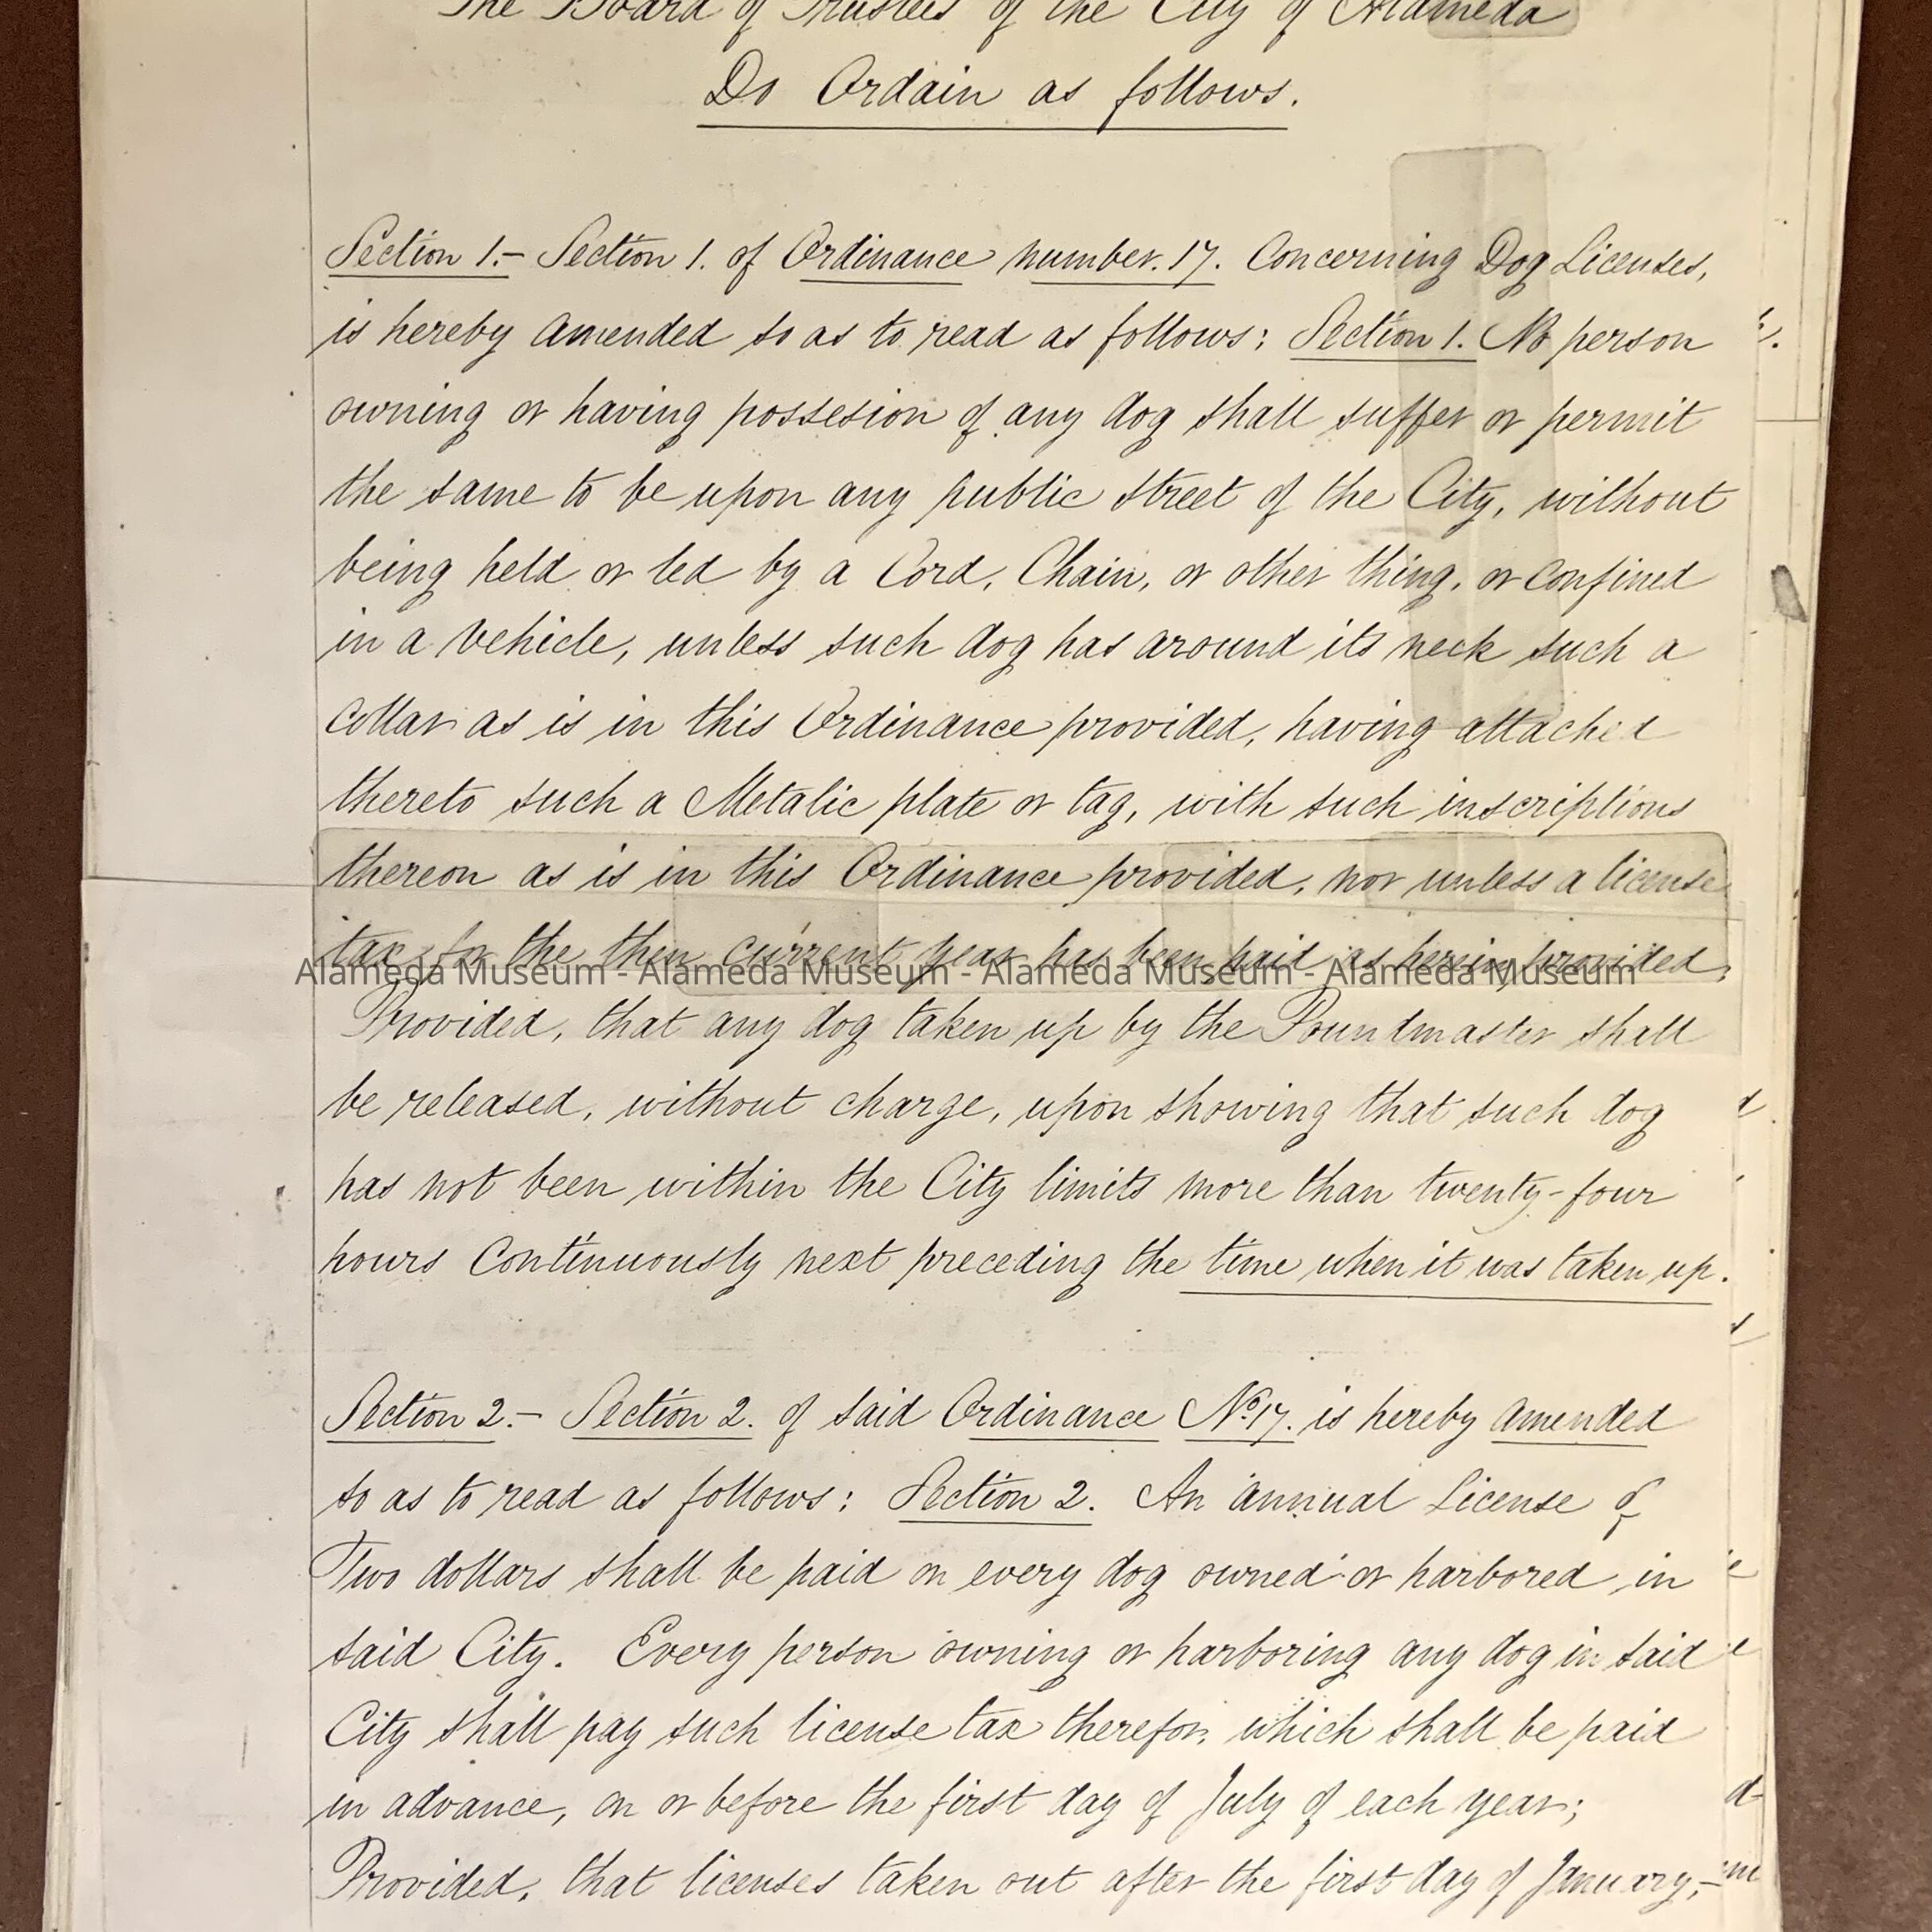 The Board of Trustees of the City of Alameda
Do Ordain as follows.
Section 1.- Section 1. of Ordinance number. 17. Concerning Dog Licenses,
is hereby amended so as to read as follows: Section 1. No person
owning or having possesion of any dog shall suffer or permit
the same to be upon any public street of the City, without
being held or led by a Cord, Chain, or other thing, or confined
in a vehicle, unless such dog has around its neck such a
Collar as is in this Ordinance provided, having attached
thereto such a Metalic plate or tag, with such inscriptions
thereon as is in this Ordinance provided, nor unless a license
tax for the then current year has been paid as herein provided;
Alameda Museum - Alameda Museum - Alameda Museum - Alameda Museum
Provided, that any dog taken up by the Poundmaster shall
be released, without charge, upon showing that such dog
has not been within the City limits more than twenty-four
hours Continuously next preceding the time when it was taken up.
Section 2.- Section 2. of said Ordinance No. 17. is hereby amended
so as to read as follows: Section 2. An annual License of
Two dollars shall be paid on every dog owned or harbored in
said City. Every person owning or harboring any dog in said
City shall pay such license tax therefor, which shall be paid
in advance, on or before the first day of July of each year;
Provided, that licenses taken out after the first day of January,-